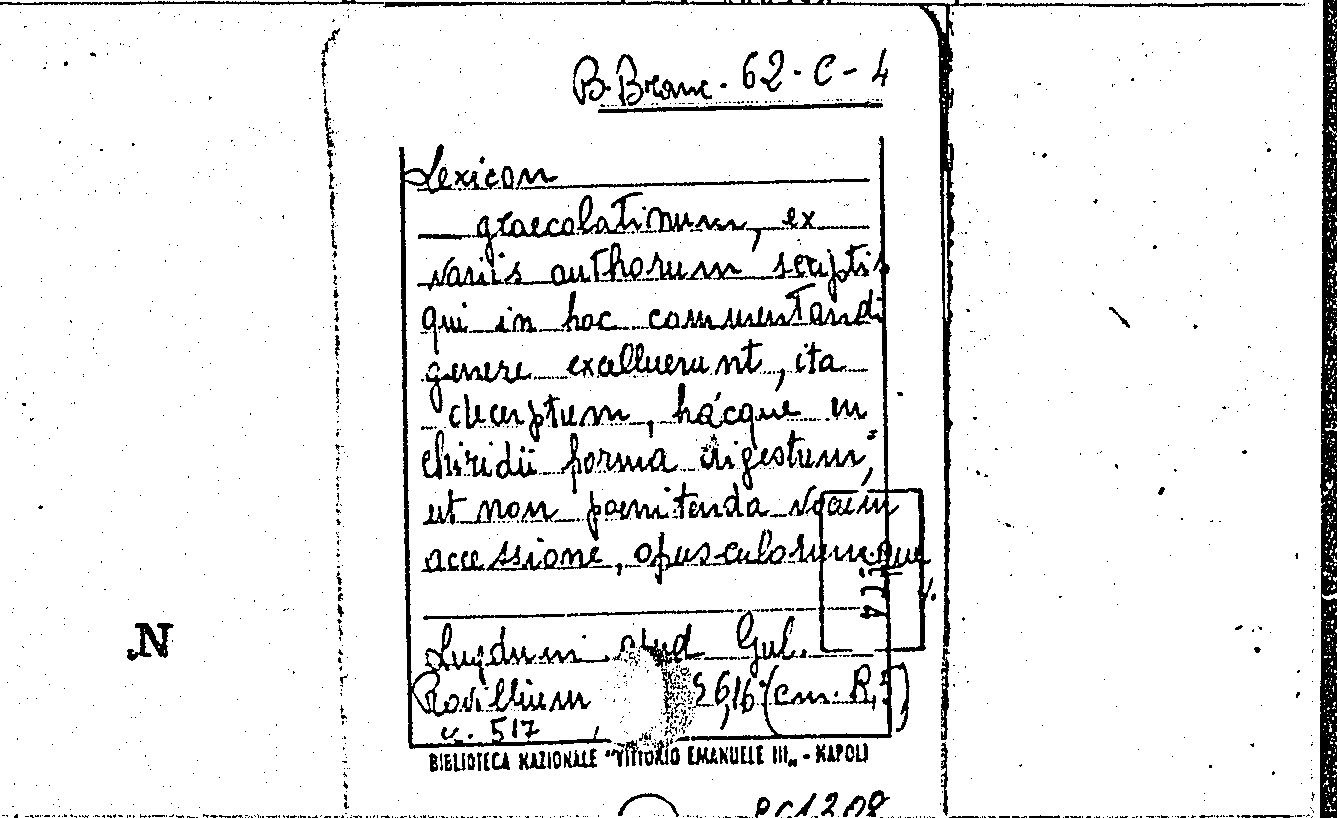 B. Branc. 62-C-4
Lexicon
graecolatinum, ex
variis authorum scriptis
qui in hoc commentandi
genere excelluerunt, ita
decerptum, hácque en
chiridii forma digestum,
ut non poenitenda vocum
accessione, opusculorumque
Lugduni apud Gul.
Rovillium 16° (cm.
c. 517
BIBLIOTECA NAZIONALE "VITTORIO EMANUELE III„ - NAPOLI
N